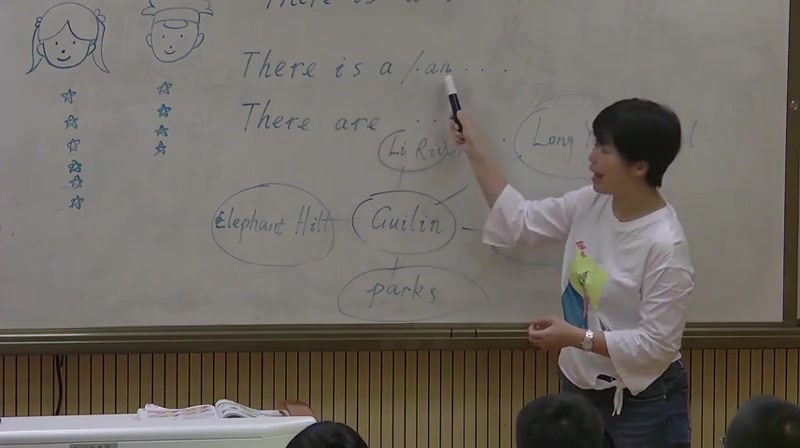 There is a
There is a / an ...
There are ...
Li River
Long
Elephant Hill
Guilin
parks